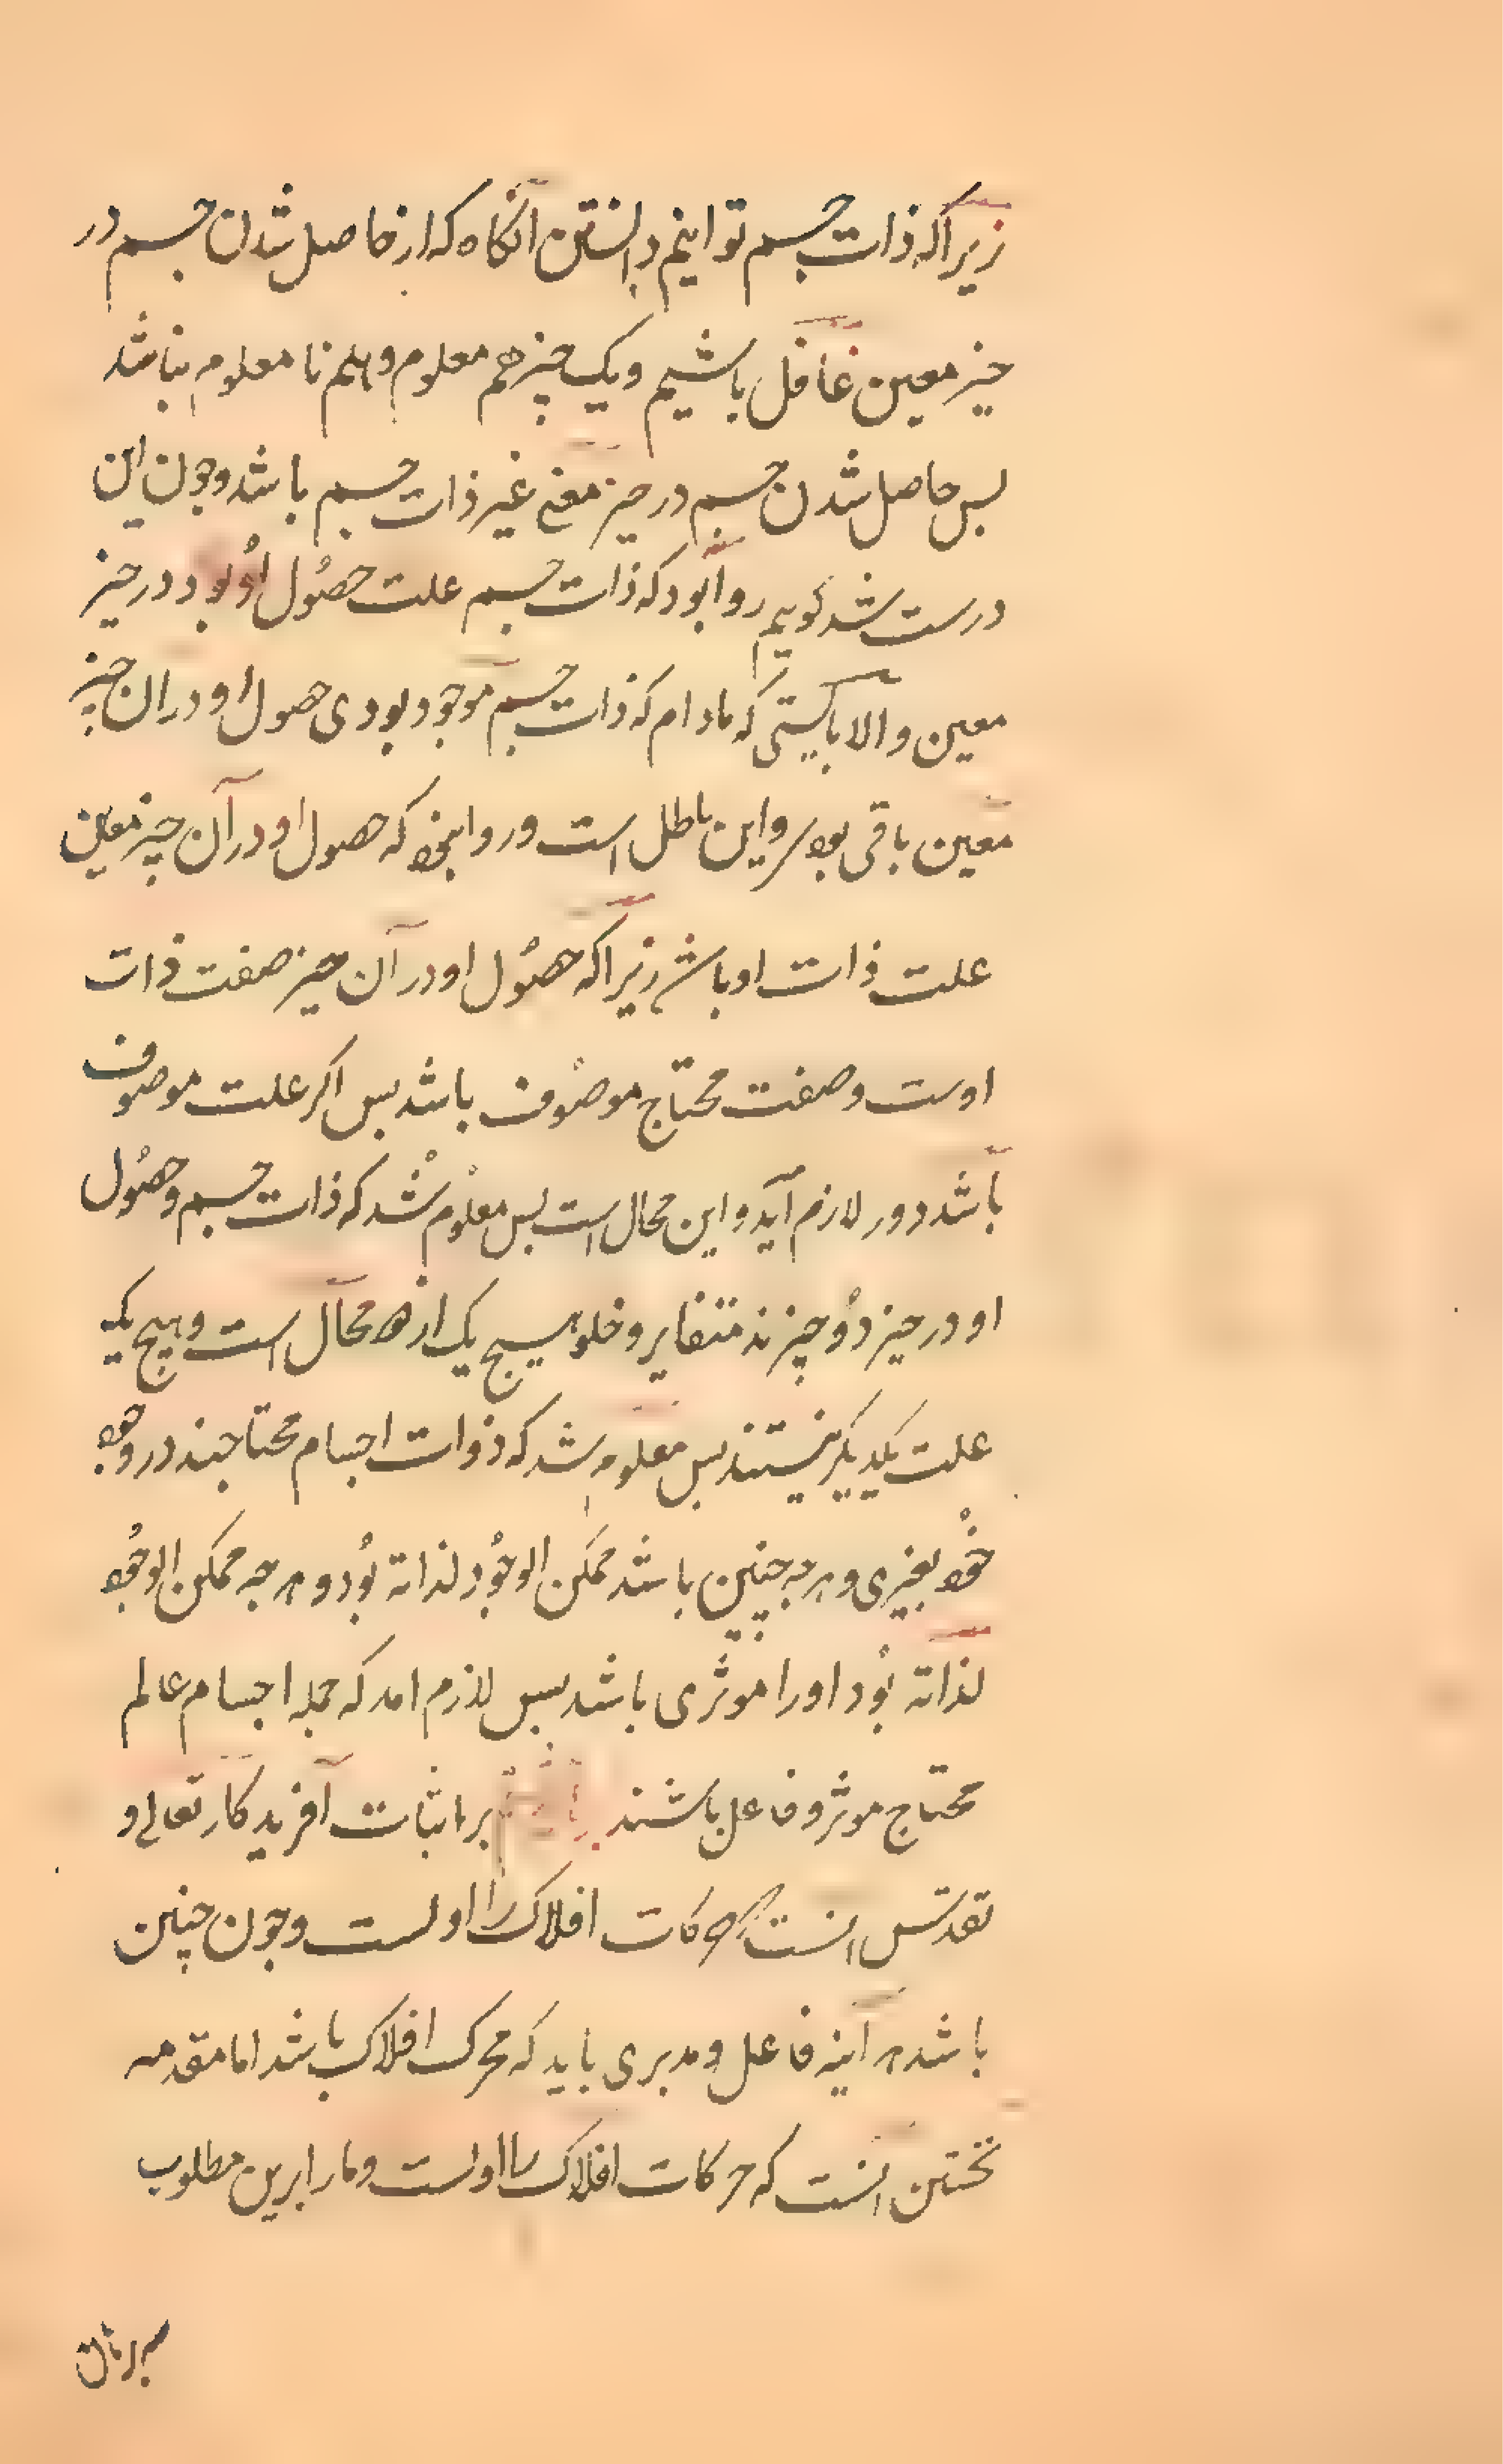 زیراکه ذات جسم توانیم دانستن آنکاه که از حاصل شدن جسم در
حیز معین غافل باشیم و یک چیز هم معلوم و هم نا معلوم نباشد
بس حاصل شدن جسم در حیز معین غیر ذات جسم باشد و جون این
درست شد کوییم روا نبود که ذات جسم علت حصول او بود در حیز
معین و الا بایستی که مادام که ذات جسم موجود بودی حصول او در ان حیز
معین باقی بودی و این باطل است و روا نبود که حصول او در آن حیز معین
علت ذات او باشد زیراکه حصول او در آن حیز صفت ذات
اوست و صفت محتاج موصوف باشد بس اکر علت موصوف
باشد دور لازم آید و این محال است بس معلوم شد که ذات جسم و حصول
او در حیز دو چیزند متغایر و خلو هیچ یک از هم محال است و هیچ یک
علت یکدیکر نیستند بس معلوم شد که ذوات اجسام محتاجند در وجود
خود بغیری و هرجه جنین باشد ممکن الوجود لذاته بود و هرجه ممکن الوجود
لذاته بود او را موثری باشد بس لازم امد که جمله اجسام عالم
محتاج موثر و فاعل باشند بر اثبات آفریدکار تعالی و
تقدس انست که حرکات افلاک را اولست و جون چنین
باشد هر آینه فاعل و مدبری باید که محرک افلاک باشد اما مقدمه
نخستین انست که حرکات افلاک را اولست و ما را برین مطلوب
برهان